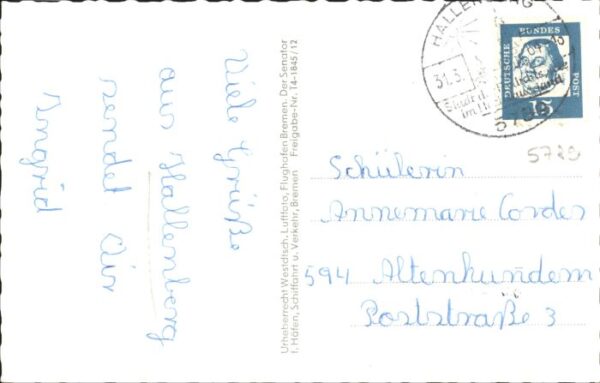 Viele Grüße
aus Hallenberg
sendet Dir
Irmgrid
Urheberrecht Westdtsch. Luftfoto, Flughafen Bremen. Der Senator
f. Häfen, Schiffahrt u. Verkehr, Bremen Freigabe-Nr. T4-1845/12
HALLENBERG
31.3.
DEUTSCHE BUNDESPOST
15
5789
Schülerin
Annemarie Cordes
594 Altenhundem
Poststraße 3